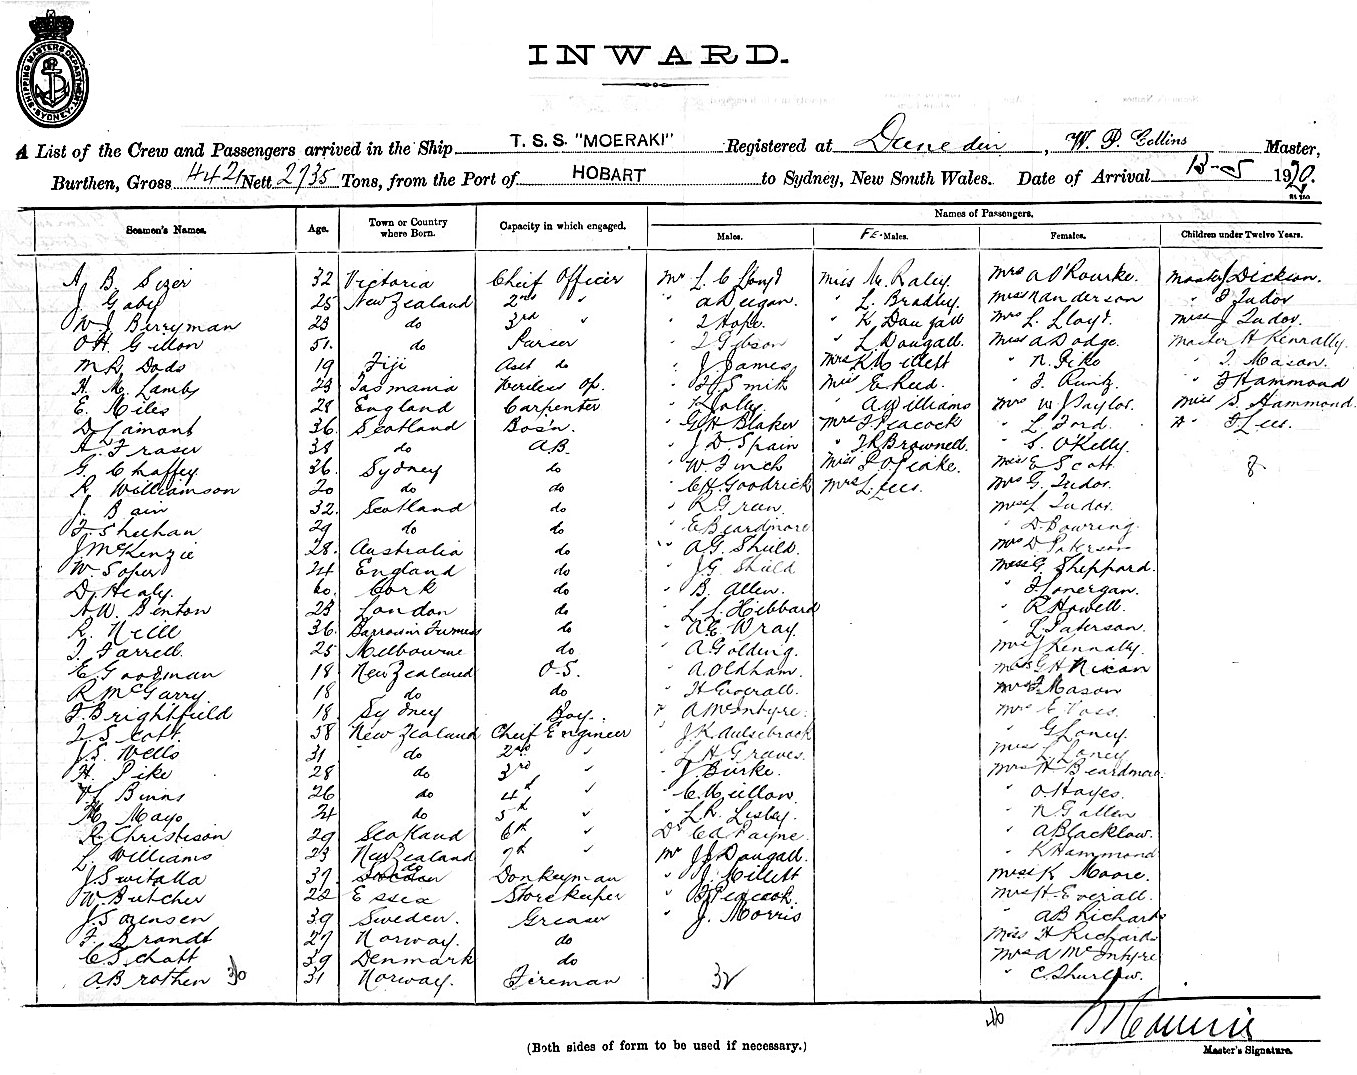 SHIPPING MASTERS DEPARTMENT SYDNEY
INWARD.
A List of the Crew and Passengers arrived in the Ship T. S. S. "MOERAKI" Registered at Dunedin, W. P. Collins Master,
Burthen, Gross 4421 Nett 2735 Tons, from the Port of HOBART to Sydney, New South Wales. Date of Arrival 13-5 1920.
Names of Passengers.
Seamen's Names. Age. Town or Country where Born. Capacity in which engaged. Males. FE-Males. Females. Children under Twelve Years.
A B Sizer 32 Victoria Chief Officer Mr L. C. Lloyd Miss M. Raley Mrs A O'Rourke. Master J Dickson.
J Gaby 25 New Zealand 2nd " " A Deegan. " L. Bradley. Miss Nanderson " F Tudor
W J Berryman 23 do 3rd " " J Hope. " K Dougall Mrs L. Lloyd. Miss J Tudor.
O H Gillon 51. do Purser " J Gibson " L Dougall. Miss A Dodge. Master H Kennally.
M R Dods 19 Fiji Asst do " J James Mrs K Millett " N. " J. Mason.
H. M. Lamb 23 Tasmania Wireless Op. " F Smith Miss E Reid. " J. " F Hammond
E. Miles 28 England Carpenter " " A Williams Mrs W Taylor. Miss S Hammond.
D Lamont 36 Scotland Bos'n. " G H Blaker Mrs F Peacock " L Ford. " F Lees.
A. Fraser 38 do A.B. " J D Spain " F. R Brownell. " S. O'Kelly.
G. Chaffey. 36. Sydney do " W Finch Miss Miss E Scott 8
R Williamson 20 do do " C H Goodrick Mrs L. Lees. Mrs G. Tudor
J. Bain 32. Scotland do " R Green Miss L Tudor.
F Sheehan 29 do do " E Beardmore " D. Bowring.
J. McKenzie 28. Australia do " A G. Shield. Mrs D Paterson
W. Soper 24 England do " J G Shield Miss G. Sheppard.
D. Healy. 60. Cork do " B. Allen. " F Lonergan.
A W. Benton 23 London do " L. S. Hibbard " R Howell.
R. Neill 36 Barrow in Furness do " A E Wray " L Paterson.
J. Farrell 25 Melbourne do " A Golding. Mrs J Kennally.
E Goodman 18 New Zealand O.S. " A Oldham. Miss G H Nixon
R McGarry 18 do do " H Everall. Mrs F Mason
F. Brightfield 18 Sydney Boy. " A McIntyre. Mrs E Voss.
J Scott 38 New Zealand Chief Engineer " J Kaulsebrook " G Loney.
J. S. Wells 31 do 2nd " " L H Graves. Miss L Loney
H. Pike 28 do 3rd " " J Burke. Mrs H Beardmore.
Binns 26 do 4th " " C. " O Hayes.
M. Mayo 24 do 5th " " L. R. Lisley. " N G allen
R. Christison 29 Scotland 6th " Dr C A Payne. " A Blacklow.
L. Williams 23 New Zealand 7th " Mr J J Dougall. " K Hammond
J Switalla 37 do Donkeyman " J. Millett Miss K Moore.
W Butcher 22 Essex Storekeeper " F Peacock. Mrs H Everall.
J. Sorensen 39 Sweden. Greaser " J. Morris " A B Richards
F. Brandt 27 Norway. do Miss H Richards
C Schatt 39 Denmark do Mrs A McIntyre
A Brothen 31 Norway. Fireman " C Thurlow.
32
46
(Both sides of form to be used if necessary.)
Master's Signature.